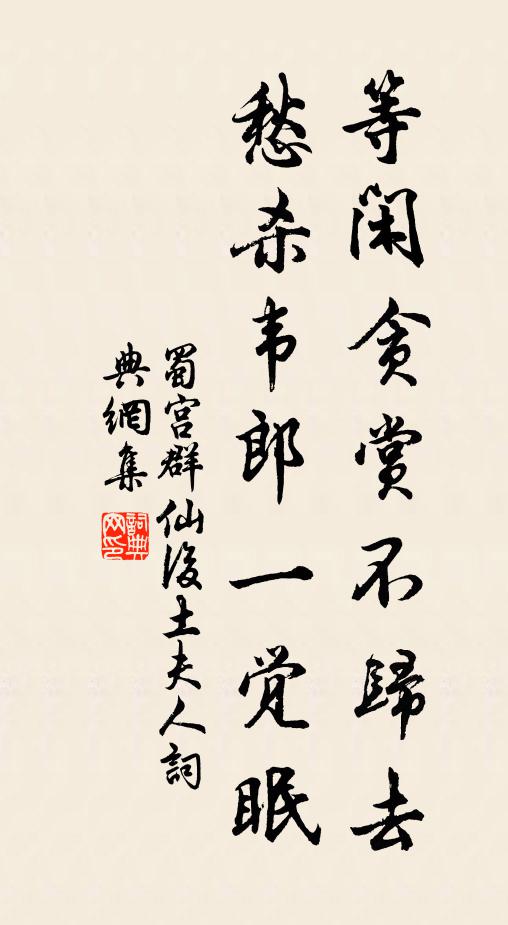 等闲贪赏不歸去
愁杀韦郎一觉眠
蜀宫群仙後土夫人詞
典網集
詞典网印